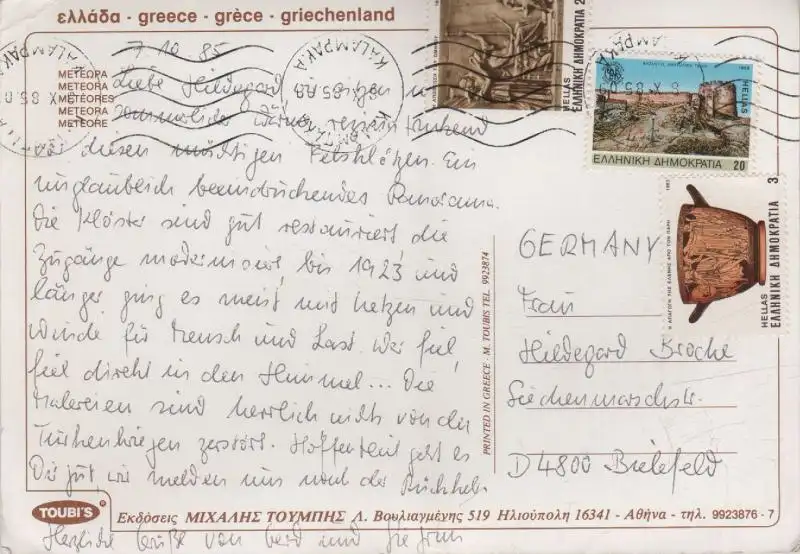 ελλάδα · greece · grèce · griechenland
7.10.85
ΜΕΤΕΩΡΑ
METEORA
MÉTÉORES
METEORA
METEORE
Liebe Hildegard
sommerliche Wärme
vor diesen mächtigen Felsklötzen. Ein
unglaublich beeindruckendes Panorama.
Die Klöster sind gut restauriert, die
Zugänge modernisiert, bis 1923 und
länger ging es meist mit Netzen und
Winde für Mensch und Last. Wer fiel,
fiel direkt in den Himmel... Die
Malereien sind herrlich nicht von den
Türkenkriegen zerstört. Hoffentlich geht es
Dir gut wir melden uns nach der Rückkehr.
Herzliche Grüße von Gerd und
PRINTED IN GREECE - M. TOUBIS TEL. 9923874
GERMANY
Frau
Hildegard Brocke
Siechenmarschstr.
D 4800 Bielefeld
KALAMPAKA
ΕΛΛΗΝΙΚΗ ΔΗΜΟΚΡΑΤΙΑ
HELLAS
ΕΛΛΗΝΙΚΗ ΔΗΜΟΚΡΑΤΙΑ 20
HELLAS
ΕΛΛΗΝΙΚΗ ΔΗΜΟΚΡΑΤΙΑ 3
TOUBI'S
Εκδόσεις ΜΙΧΑΛΗΣ ΤΟΥΜΠΗΣ Λ. Βουλιαγμένης 519 Ηλιούπολη 16341 - Αθήνα - τηλ. 9923876 - 7